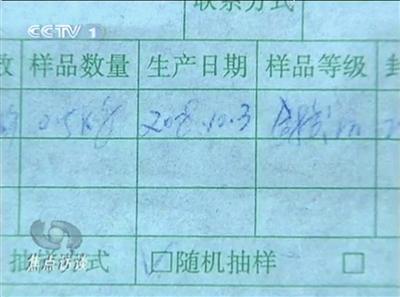 CCTV 1
联系方式
数 样品数量 生产日期 样品等级 封
0.5kg 2008.10.3 合格品
抽样方式 □随机抽样 □
焦点访谈